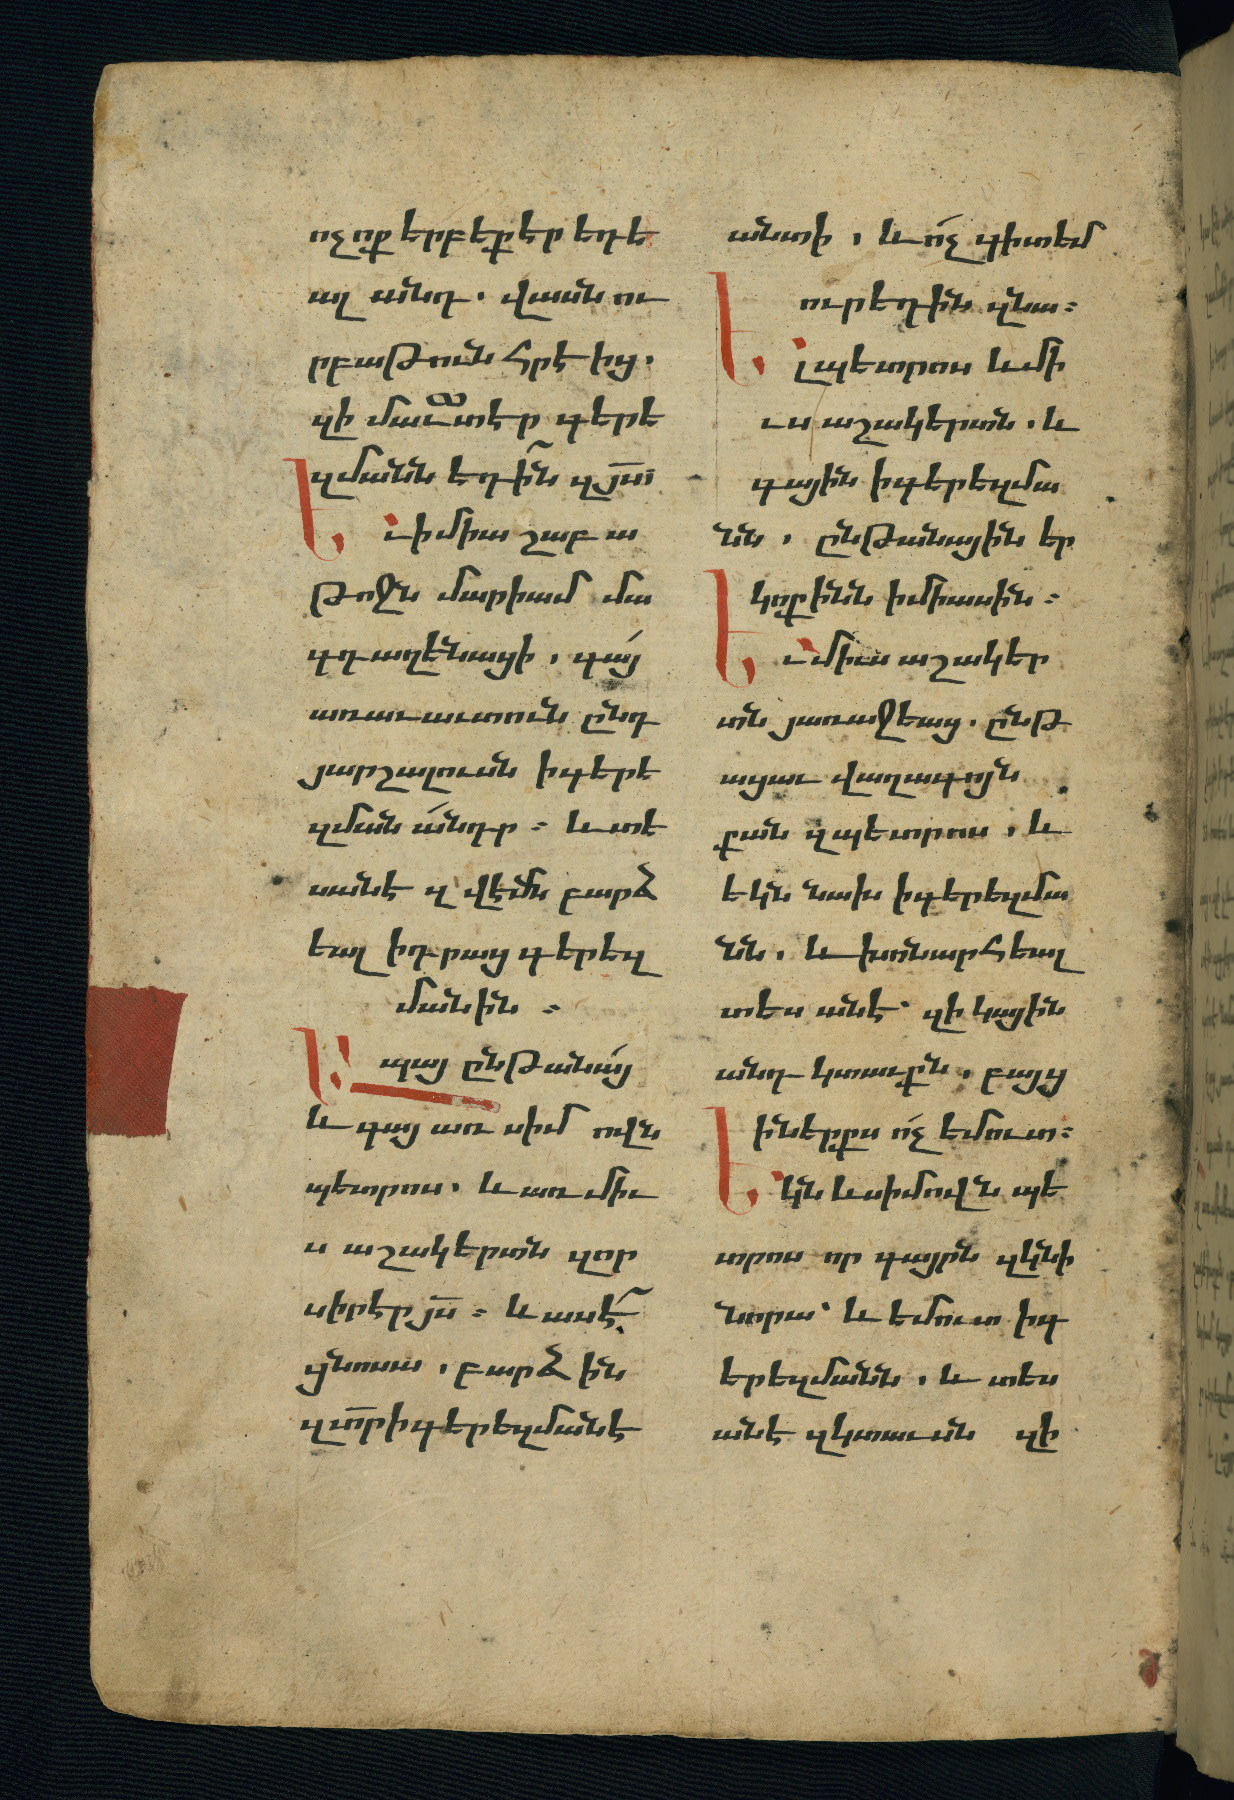 ոչ ոք երբեք էր եդե
ալ անդ. վասն ու
րբաթուն հրէից.
զի մաւտ էր գերե
զմանն եդին զյս։
Եւ ի միաշաբա
թոջն մարիամ մա
գդաղէնացի, գայ
առաւաւտուն ընդ
յարշալուսն ի գերե
զման անդր։ և տե
սանէ զվէմն բարձ
եալ ի դրաց գերեզ
մանին։
Ապայ ընթանայ
և գայ առ սիմովն
պետրոս. և առ միւ
ս աշակերտն զոր
սիրէր յս։ և ասէ
ցնոսա, բարձին
զտր ի գերեզմանէ
անտի, և ոչ գիտեմ
ուր եդին զնա։
Ել պետրոս և մի
ւս աշակերտն. և
գային ի գերեզմա
նն, ընթանային եր
կոքինն ի միասին։
Եւ միւս աշակեր
տն յառաջեաց. ընթ
ացաւ վաղագոյն
քան զպետրոս, և
եկն նախ ի գերեզմա
նն. և խոնարհեալ
տեսանէ՝ զի կային
անդ կտաւքն. բայց
ի ներքս ոչ եմուտ։
Եկն և սիմովն պե
տրոս որ գայրն զկնի
նորա՝ և եմուտ ի գ
երեզմանն, և տես
անէ զկտաւսն զի